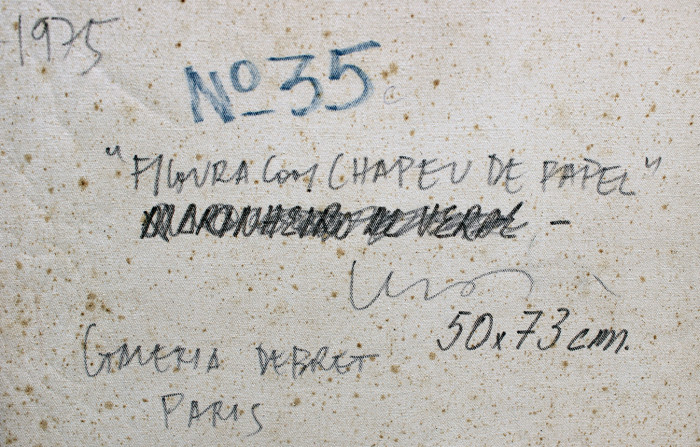 1975
Nº 35
"FIGURA COM CHAPEU DE PAPEL"
MARINHEIRO
50 x 73 cm.
GALERIA DEBRET
PARIS